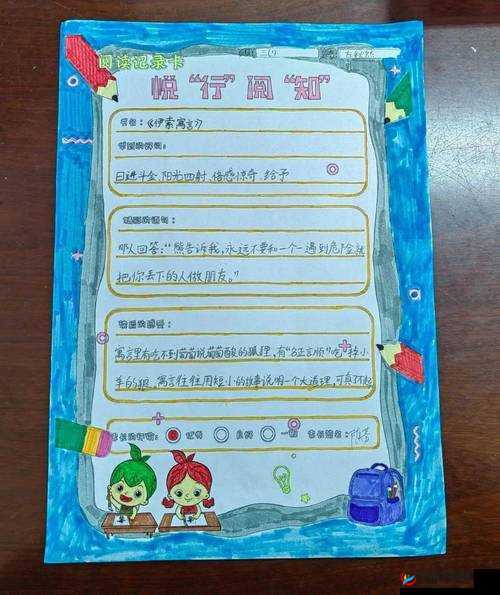 阅读记录卡
三(
悦“行”阅“知”
书名：《伊索寓言》
日进斗金、阳光四射、倍感惊奇、给予
精彩的语句：
那人回答：“熊告诉我，永远不要和一个一遇到危险就
把你丢下的人做朋友。”
读后的感受：
寓言里有吃不到葡萄说葡萄酸的狐狸，有“名正言顺”吃掉小
羊的狼，寓言往往用短小的故事说明一个大道理，可真不起
家长的评价： 优秀 良好 一般 家长签名：